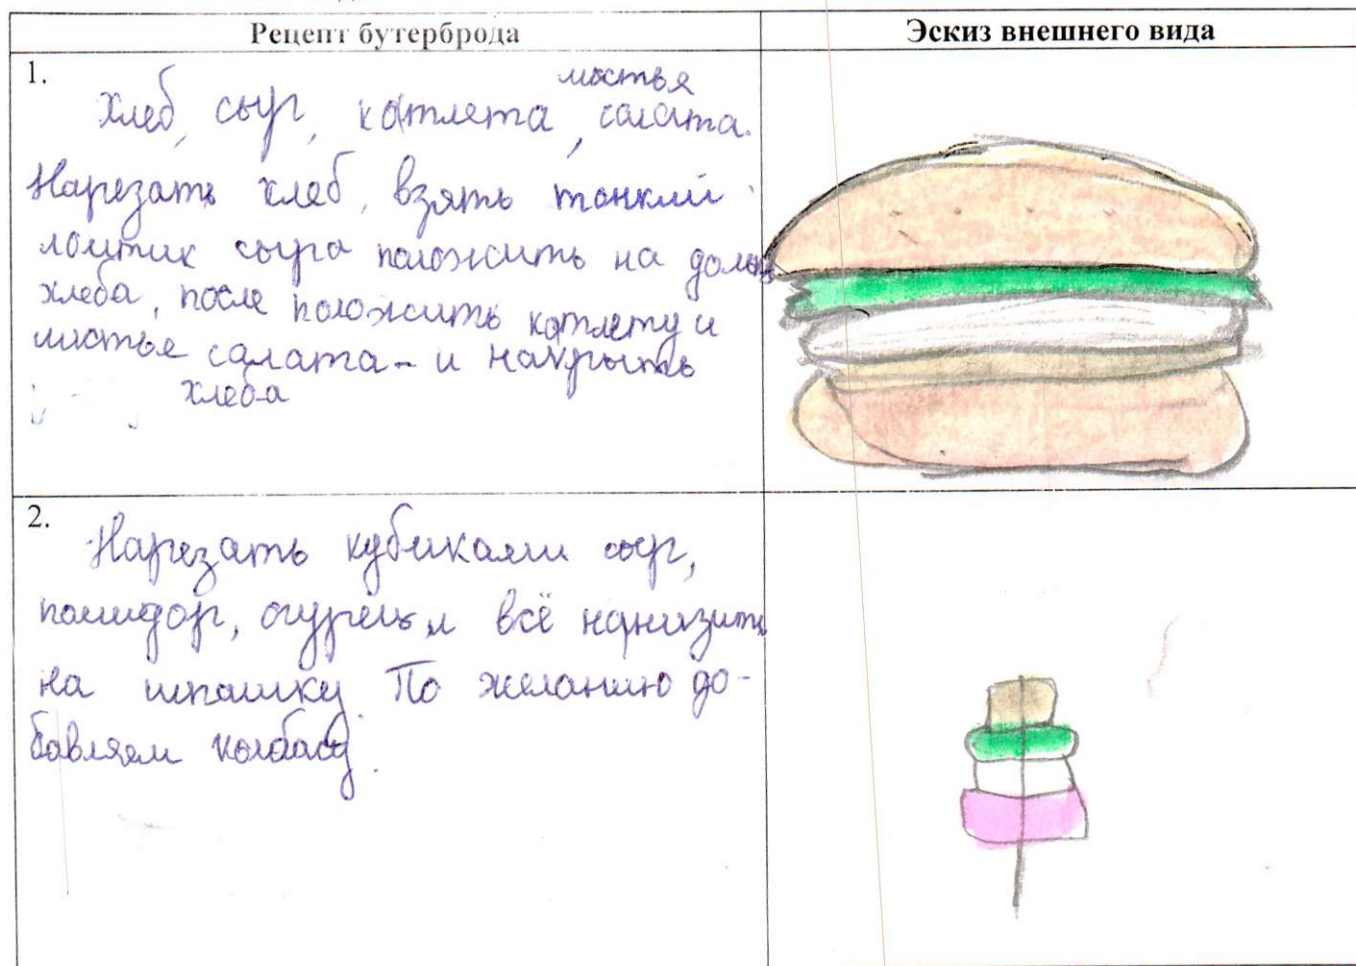 Рецепт бутерброда
Эскиз внешнего вида
1.
листья
хлеб, сыр, котлета, салата.
Нарезать хлеб, взять тонкий
ломтик сыра положить на
хлеба, после положить котлету и
листье салата - и накрыть
хлеба
2.
Нарезать кубиками сыр,
помидор, огурец и всё нанизить
на шпашку. По желанию до-
бавляем колбасу.